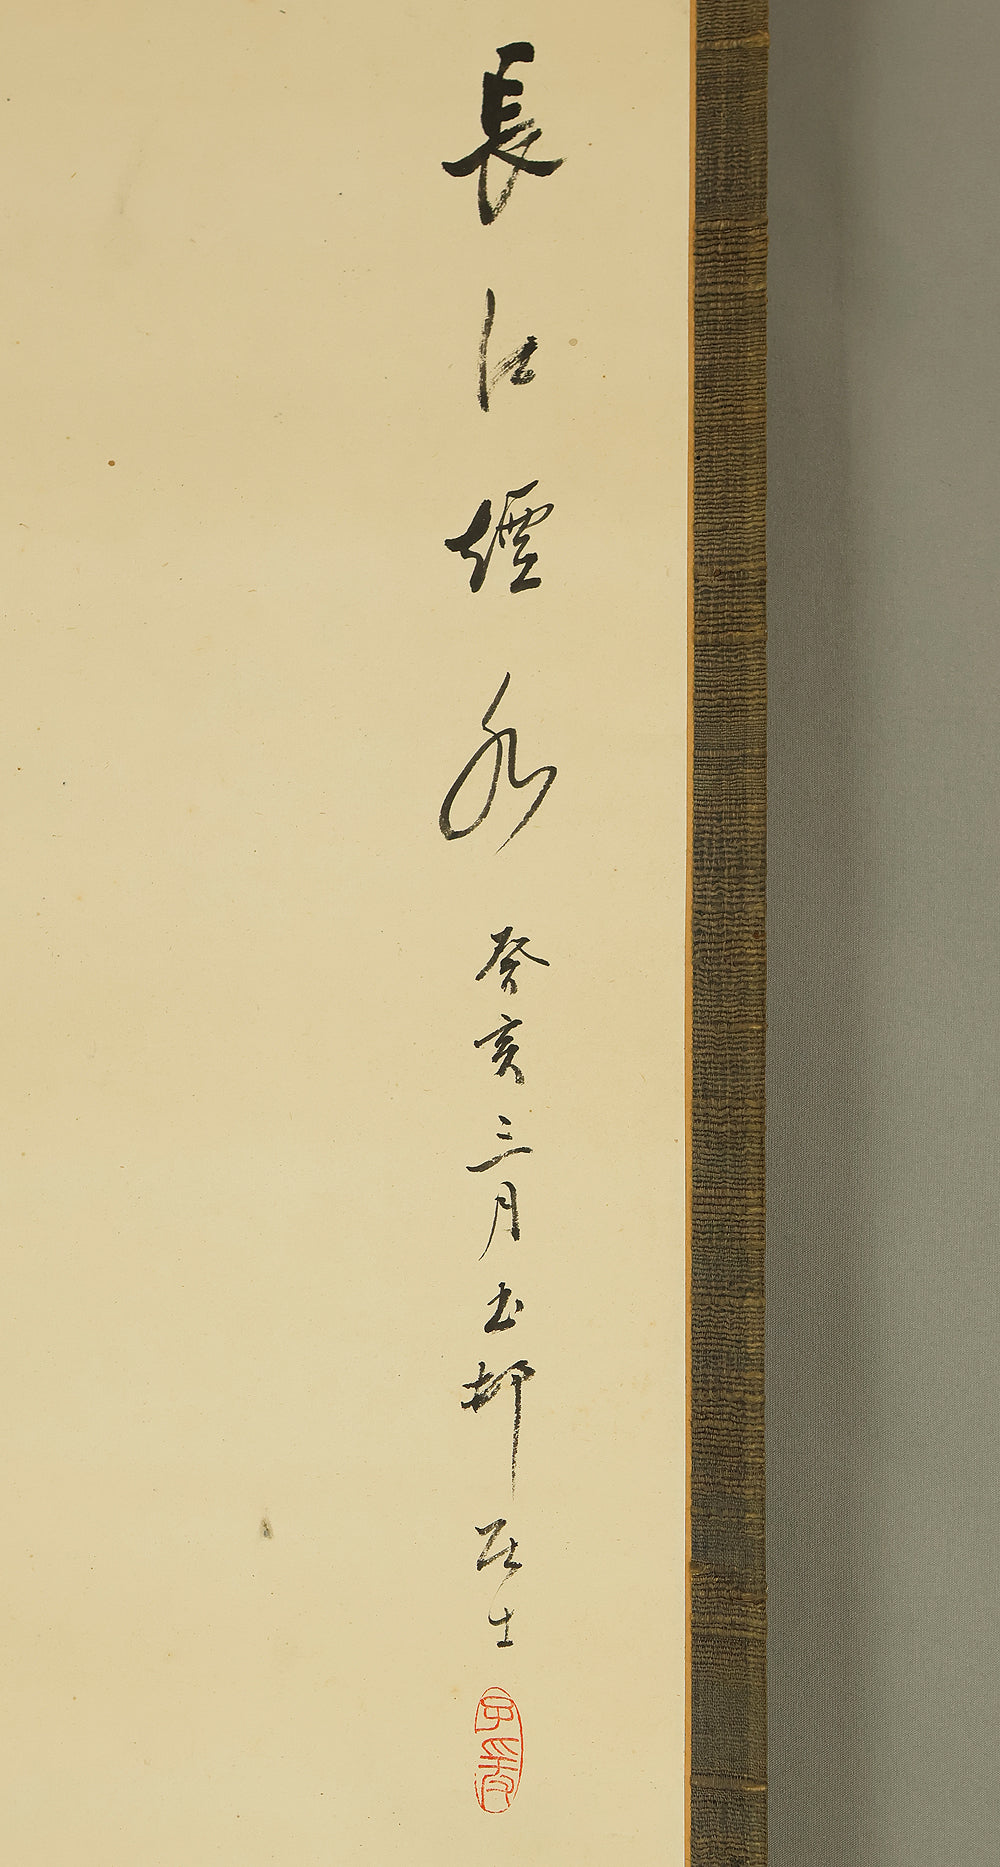 長江煙水 癸亥三月玉邨居士